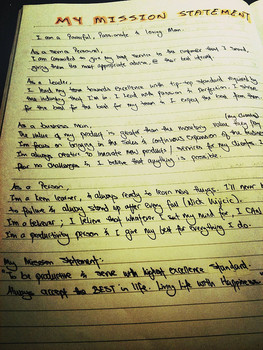 MY MISSION STATEMENT
I am a Powerful, Passionate & loving Man.
As a Personal,
I am committed to give my best service to the customer that I served,
giving them the most appropriate advice @ their best interest.
As a Leader,
I lead my team towards excellence with tip-top standard required by
the industry that I'm in. I lead with passion to perfection. I strive
for the best and do best for my team & I expect the best from them
As a business man,
The value of my product is greater than the monetary value I pay
I'm focus on bringing in the sales & continuous expansion of the
I'm always creative to innovate best products / services for my clients. I
fear no challenges & I believe that anything is possible.
As a Person,
I'm a keen learner, & always ready to learn new things. I'll never
to failure & always stand up after every fail (Nick Vujicic).
I'm a believer, I believe that whatever I set my mind for, I CAN
I'm a productivity person & I give my best for everything I do.
My Mission Statement:
"To be productive & serve with highest excellence standard.
Always accept the BEST in life. Living Life with Happiness."